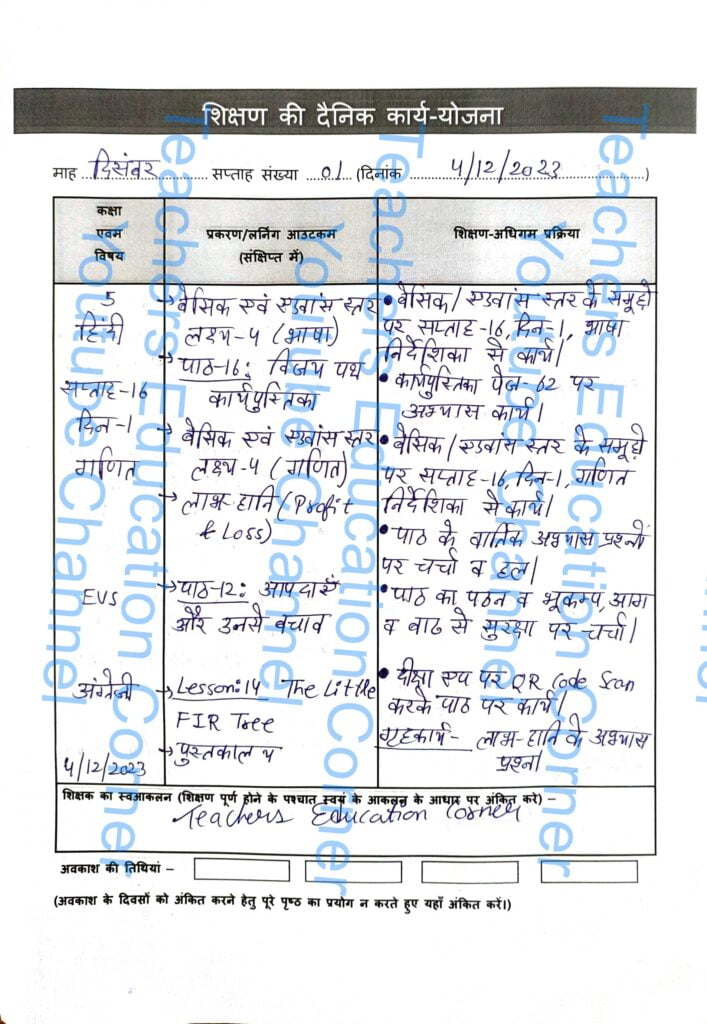 शिक्षण की दैनिक कार्य-योजना
माह ..दिसंबर.......... सप्ताह संख्या ...01.. (दिनांक ..........4/12/2023..........)
कक्षा
एवम
विषय
प्रकरण/लर्निंग आउटकम
(संक्षिप्त में)
शिक्षण-अधिगम प्रक्रिया
5
हिंदी
सप्ताह-16
दिन-1
गणित
EVS
अंग्रेजी
4/12/2023
→ बेसिक एवं एडवांस स्तर
लक्ष्य-4 (भाषा)
→ पाठ-16: विजय पथ
कार्यपुस्तिका
→ बेसिक एवं एडवांस स्तर
लक्ष्य-4 (गणित)
→ लाभ-हानि (Profit
& Loss)
→ पाठ-12: आपदाएँ
और उनसे बचाव
→ Lesson:14 The Little
FIR Tree
→ पुस्तकालय
• बेसिक/एडवांस स्तर के समूहों
पर सप्ताह-16, दिन-1, भाषा
निर्देशिका से कार्य।
• कार्यपुस्तिका पेज-62 पर
अभ्यास कार्य।
• बेसिक/एडवांस स्तर के समूहों
पर सप्ताह-16, दिन-1, गणित
निर्देशिका से कार्य।
• पाठ के वार्तिक अभ्यास प्रश्नों
पर चर्चा व हल।
• पाठ का पठन व भूकम्प, आग
व बाढ से सुरक्षा पर चर्चा।
• दीक्षा एप पर QR Code Scan
करके पाठ पर कार्य।
गृहकार्य- लाभ-हानि के अभ्यास
प्रश्न।
शिक्षक का स्वआकलन (शिक्षण पूर्ण होने के पश्चात स्वयं के आकलन के आधार पर अंकित करे) –
Teachers Education Corner
अवकाश की तिथियां –
(अवकाश के दिवसों को अंकित करने हेतु पूरे पृष्ठ का प्रयोग न करते हुए यहाँ अंकित करें।)
Teachers Education Corner
Youtube Channel
Teachers Education Corner
Youtube Channel
Teachers Education Corner
Youtube Channel